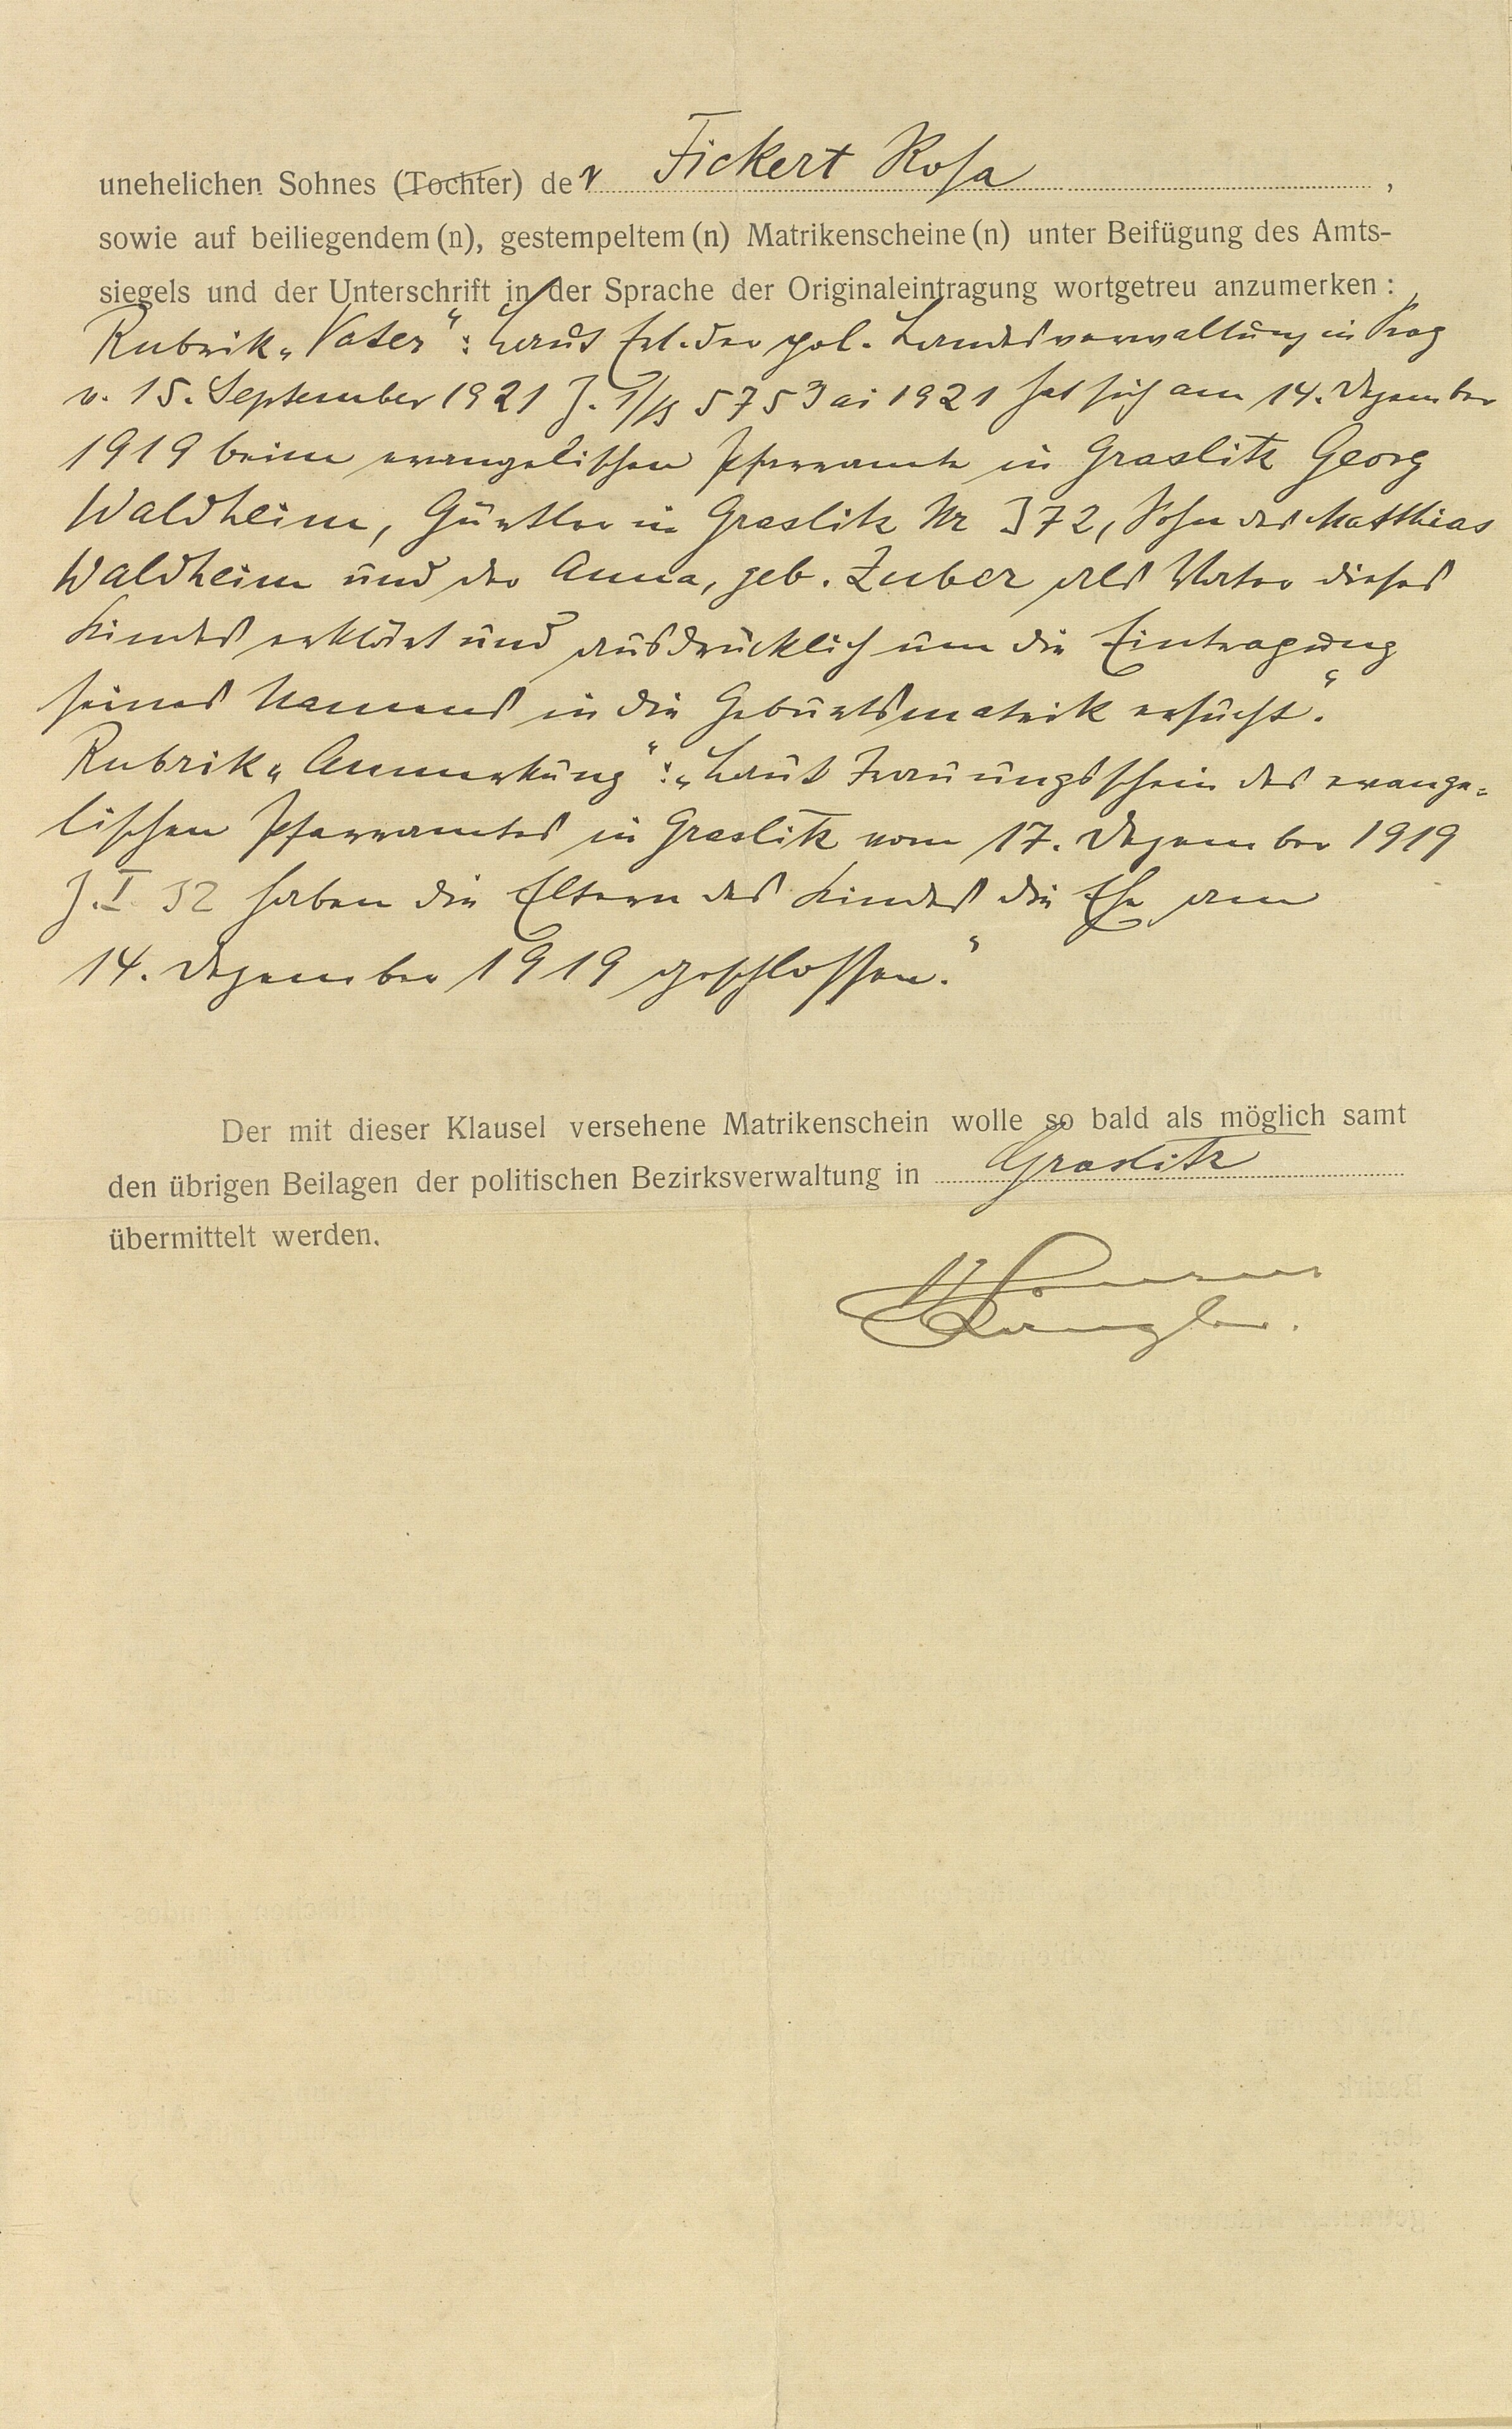 unehelichen Sohnes (Tochter) der Fickert Rosa,
sowie auf beiliegendem (n), gestempeltem (n) Matrikenscheine (n) unter Beifügung des Amts-
siegels und der Unterschrift in der Sprache der Originaleintragung wortgetreu anzumerken:
Rubrik „Vater“: „Laut Erl. der pol. Landesverwaltung in Prag
v. 15. September 1921 Z. 5753 ai 1921 hat sich am 14. Dezember
1919 beim evangelischen Pfarramte in Graslitz Georg
Waldheim, Gürtler in Graslitz Nr 372, Sohn des Matthias
Waldheim und der Anna, geb. Zuber als Vater dieses
Kindes erklärt und ausdrücklich um die Eintragung
seines Namens in die Geburtsmatrik ersucht.“
Rubrik „Anmerkung“: „Laut Trauungsschein des evange-
lischen Pfarramtes in Graslitz vom 17. Dezember 1919
Z. I 32 haben die Eltern des Kindes die Ehe am
14. Dezember 1919 geschlossen.“
Der mit dieser Klausel versehene Matrikenschein wolle so bald als möglich samt
den übrigen Beilagen der politischen Bezirksverwaltung in Graslitz
übermittelt werden.